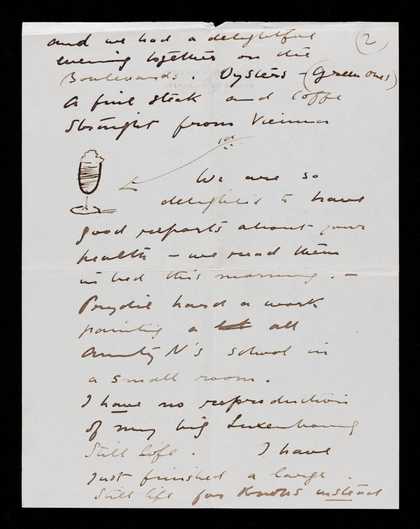 and we had a delightful (2)
evening together on the
Boulevards. Oysters - (green ones)
a fine steak and coffe
straight from Vienna
We are so
delighted to have
good reports about your
health - we read them
in bed this morning. -
hard a work
painting a all
Aunty N's school in
a small room.
I have no reproduction
of my big Luxembourg
Still life. I have
Just finished a large
Still life for Knodls instead